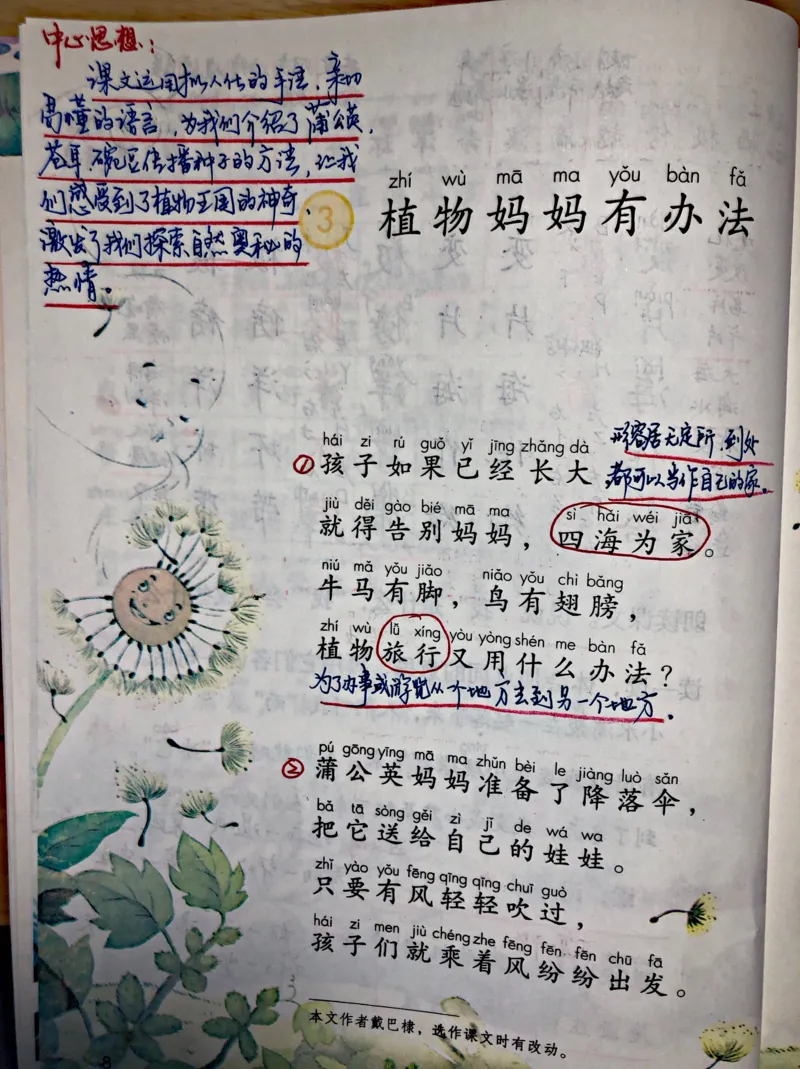 中心思想：
课文运用拟人化的手法，亲切
易懂的语言，为我们介绍了蒲公英，
苍耳，碗豆传播种子的方法，让我
们感受到了植物王国的神奇，
激发了我们探索自然奥秘的
热情。
3
zhí wù mā ma yǒu bàn fǎ
植物妈妈有办法
形容居无定所，到处
都可以当作自己的家。
hái zi rú guǒ yǐ jīng zhǎng dà
①孩子如果已经长大
jiù děi gào bié mā ma sì hǎi wéi jiā
就得告别妈妈，四海为家。
niú mǎ yǒu jiǎo niǎo yǒu chì bǎng
牛马有脚，鸟有翅膀，
zhí wù lǚ xíng yòu yòng shén me bàn fǎ
植物旅行又用什么办法？
为了办事或游览从一个地方去到另一个地方。
pú gōng yīng mā ma zhǔn bèi le jiàng luò sǎn
②蒲公英妈妈准备了降落伞，
bǎ tā sòng gěi zì jǐ de wá wa
把它送给自己的娃娃。
zhǐ yào yǒu fēng qīng qīng chuī guò
只要有风轻轻吹过，
hái zi men jiù chéng zhe fēng fēn fēn chū fā
孩子们就乘着风纷纷出发。
本文作者戴巴棣，选作课文时有改动。
8